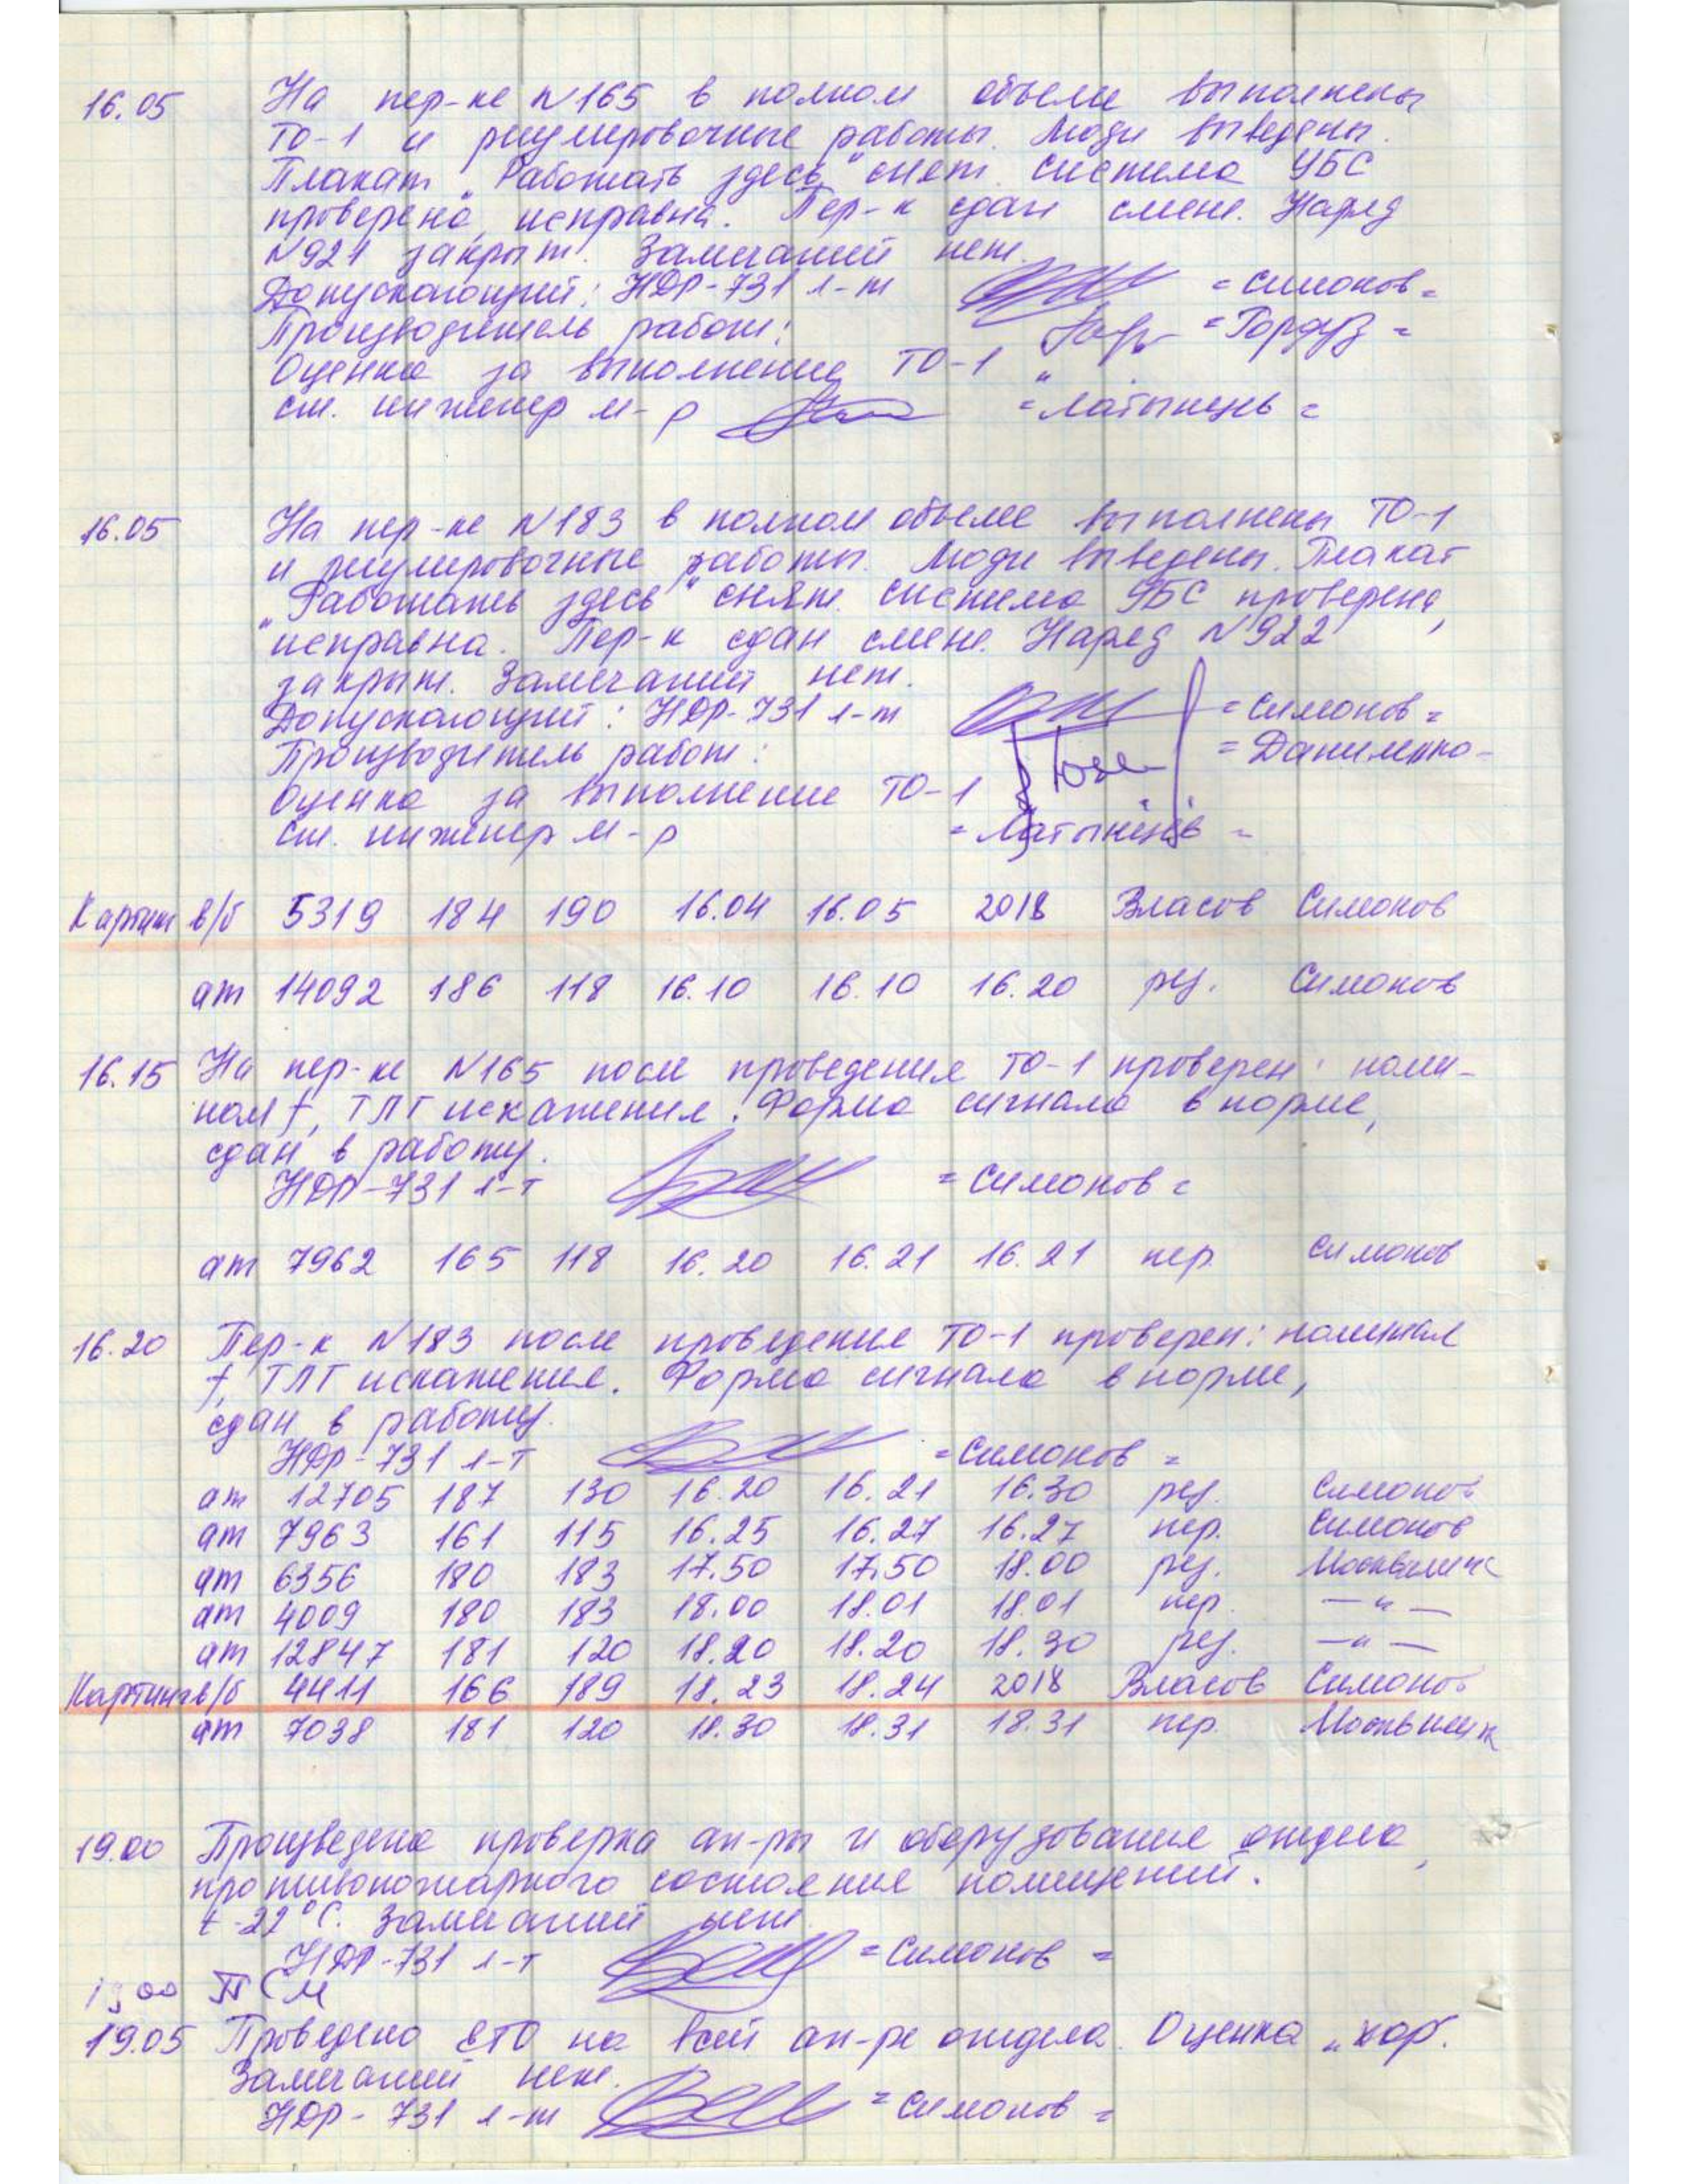 16.05 На пер-ке №165 в полном объеме выполнены
ТО-1 и регулировочные работы. Люди выведены.
Плакат „Работать здесь" снят. Система УБС
проверена, исправна. Пер-к сдан смене. Наряд
№921 закрыт. Замечаний нет.
Допускающий: НДР-731 л-т =Симонов=
Производитель работ: =Гордуз=
Оценка за выполнение ТО-1 „
ст. инженер м-р =Латынцев=
16.05 На пер-ке №183 в полном объеме выполнены ТО-1
и регулировочные работы. Люди выведены. Плакат
„Работать здесь" снят. Система УБС проверена,
исправна. Пер-к сдан смене. Наряд №922
закрыт. Замечаний нет.
Допускающий: НДР-731 л-т =Симонов=
Производитель работ: =Даниленко-
Оценка за выполнение ТО-1
ст. инженер м-р =Латынцев=
Картинг в/б 5319 184 190 16.04 16.05 2018 Власов Симонов
ат 14092 186 118 16.10 16.10 16.20 рез. Симонов
16.15 На пер-ке №165 после проведения ТО-1 проверен: номи-
нал f, ТЛГ искажения. Форма сигнала в норме,
сдан в работу.
НДР-731 л-т =Симонов=
ат 7962 165 118 16.20 16.21 16.21 пер. Симонов
16.20 Пер-к №183 после проведения ТО-1 проверен: номинал
f, ТЛГ искажения. Форма сигнала в норме,
сдан в работу.
НДР-731 л-т =Симонов=
ат 12705 187 130 16.20 16.21 16.30 рез. Симонов
ат 7963 161 115 16.25 16.27 16.27 пер. Симонов
ат 6356 180 183 17.50 17.50 18.00 рез.
ат 4009 180 183 18.00 18.01 18.01 пер. —"—
ат 12847 181 120 18.20 18.20 18.30 рез. —"—
Картинг в/б 4411 166 189 18.23 18.24 2018 Власов Симонов
ат 7038 181 120 18.30 18.31 18.31 пер.
19.00 Произведена проверка ап-ры и оборудования отдела,
противопожарного состояния помещений.
t-22°С. Замечаний нет.
НДР-731 л-т =Симонов=
19 00 ПСМ
19.05 Проведено ЕТО на всей ап-ре отдела. Оценка „хор".
Замечаний нет.
НДР-731 л-т =Симонов=